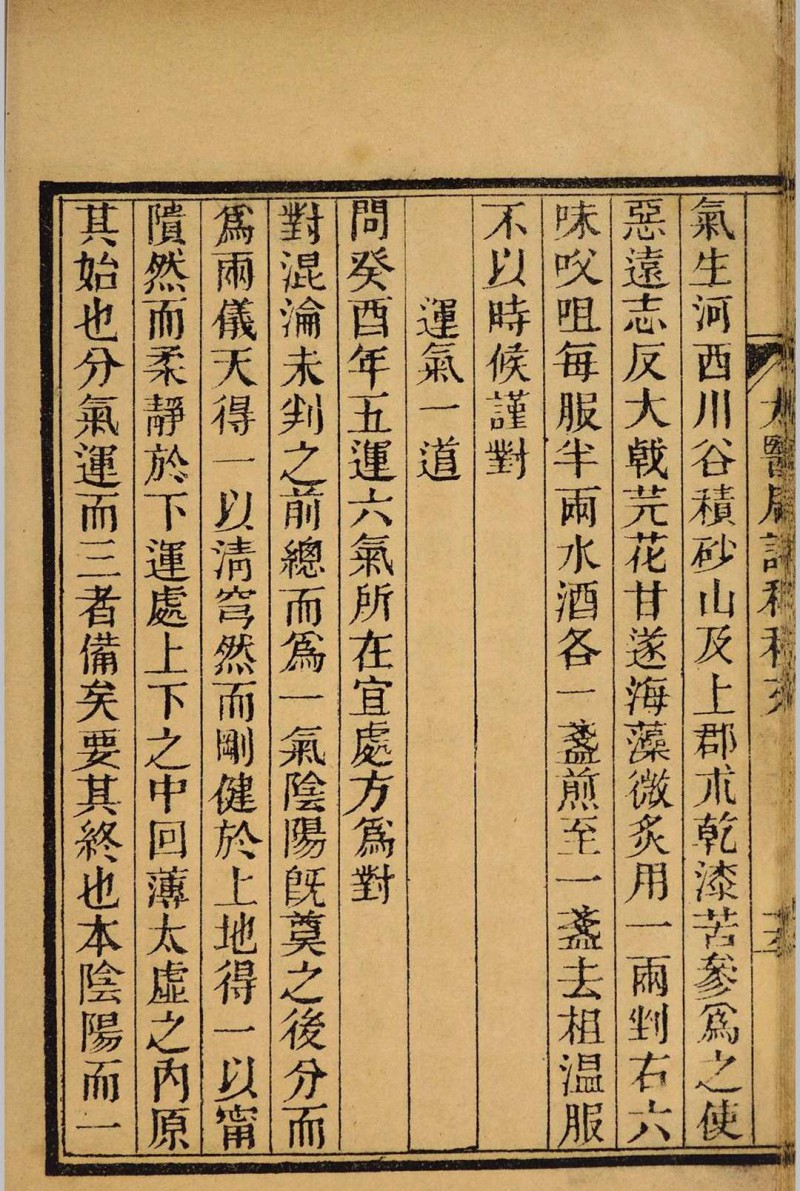 氣生河西川谷積砂山及上郡朮乾漆苦參爲之使
惡遠志反大戟芫花甘遂海藻微炙用一兩剉右六
味㕮咀每服半兩水酒各一盞煎至一盞去柤温服
不以時候謹對
運氣一道
問癸酉年五運六氣所在宜處方爲對
對混淪未判之前總而爲一氣陰陽旣奠之後分而
爲兩儀天得一以淸穹然而剛健於上地得一以甯
隤然而柔靜於下運處上下之中回薄太虛之內原
其始也分氣運而三者備矣要其終也本陰陽而一